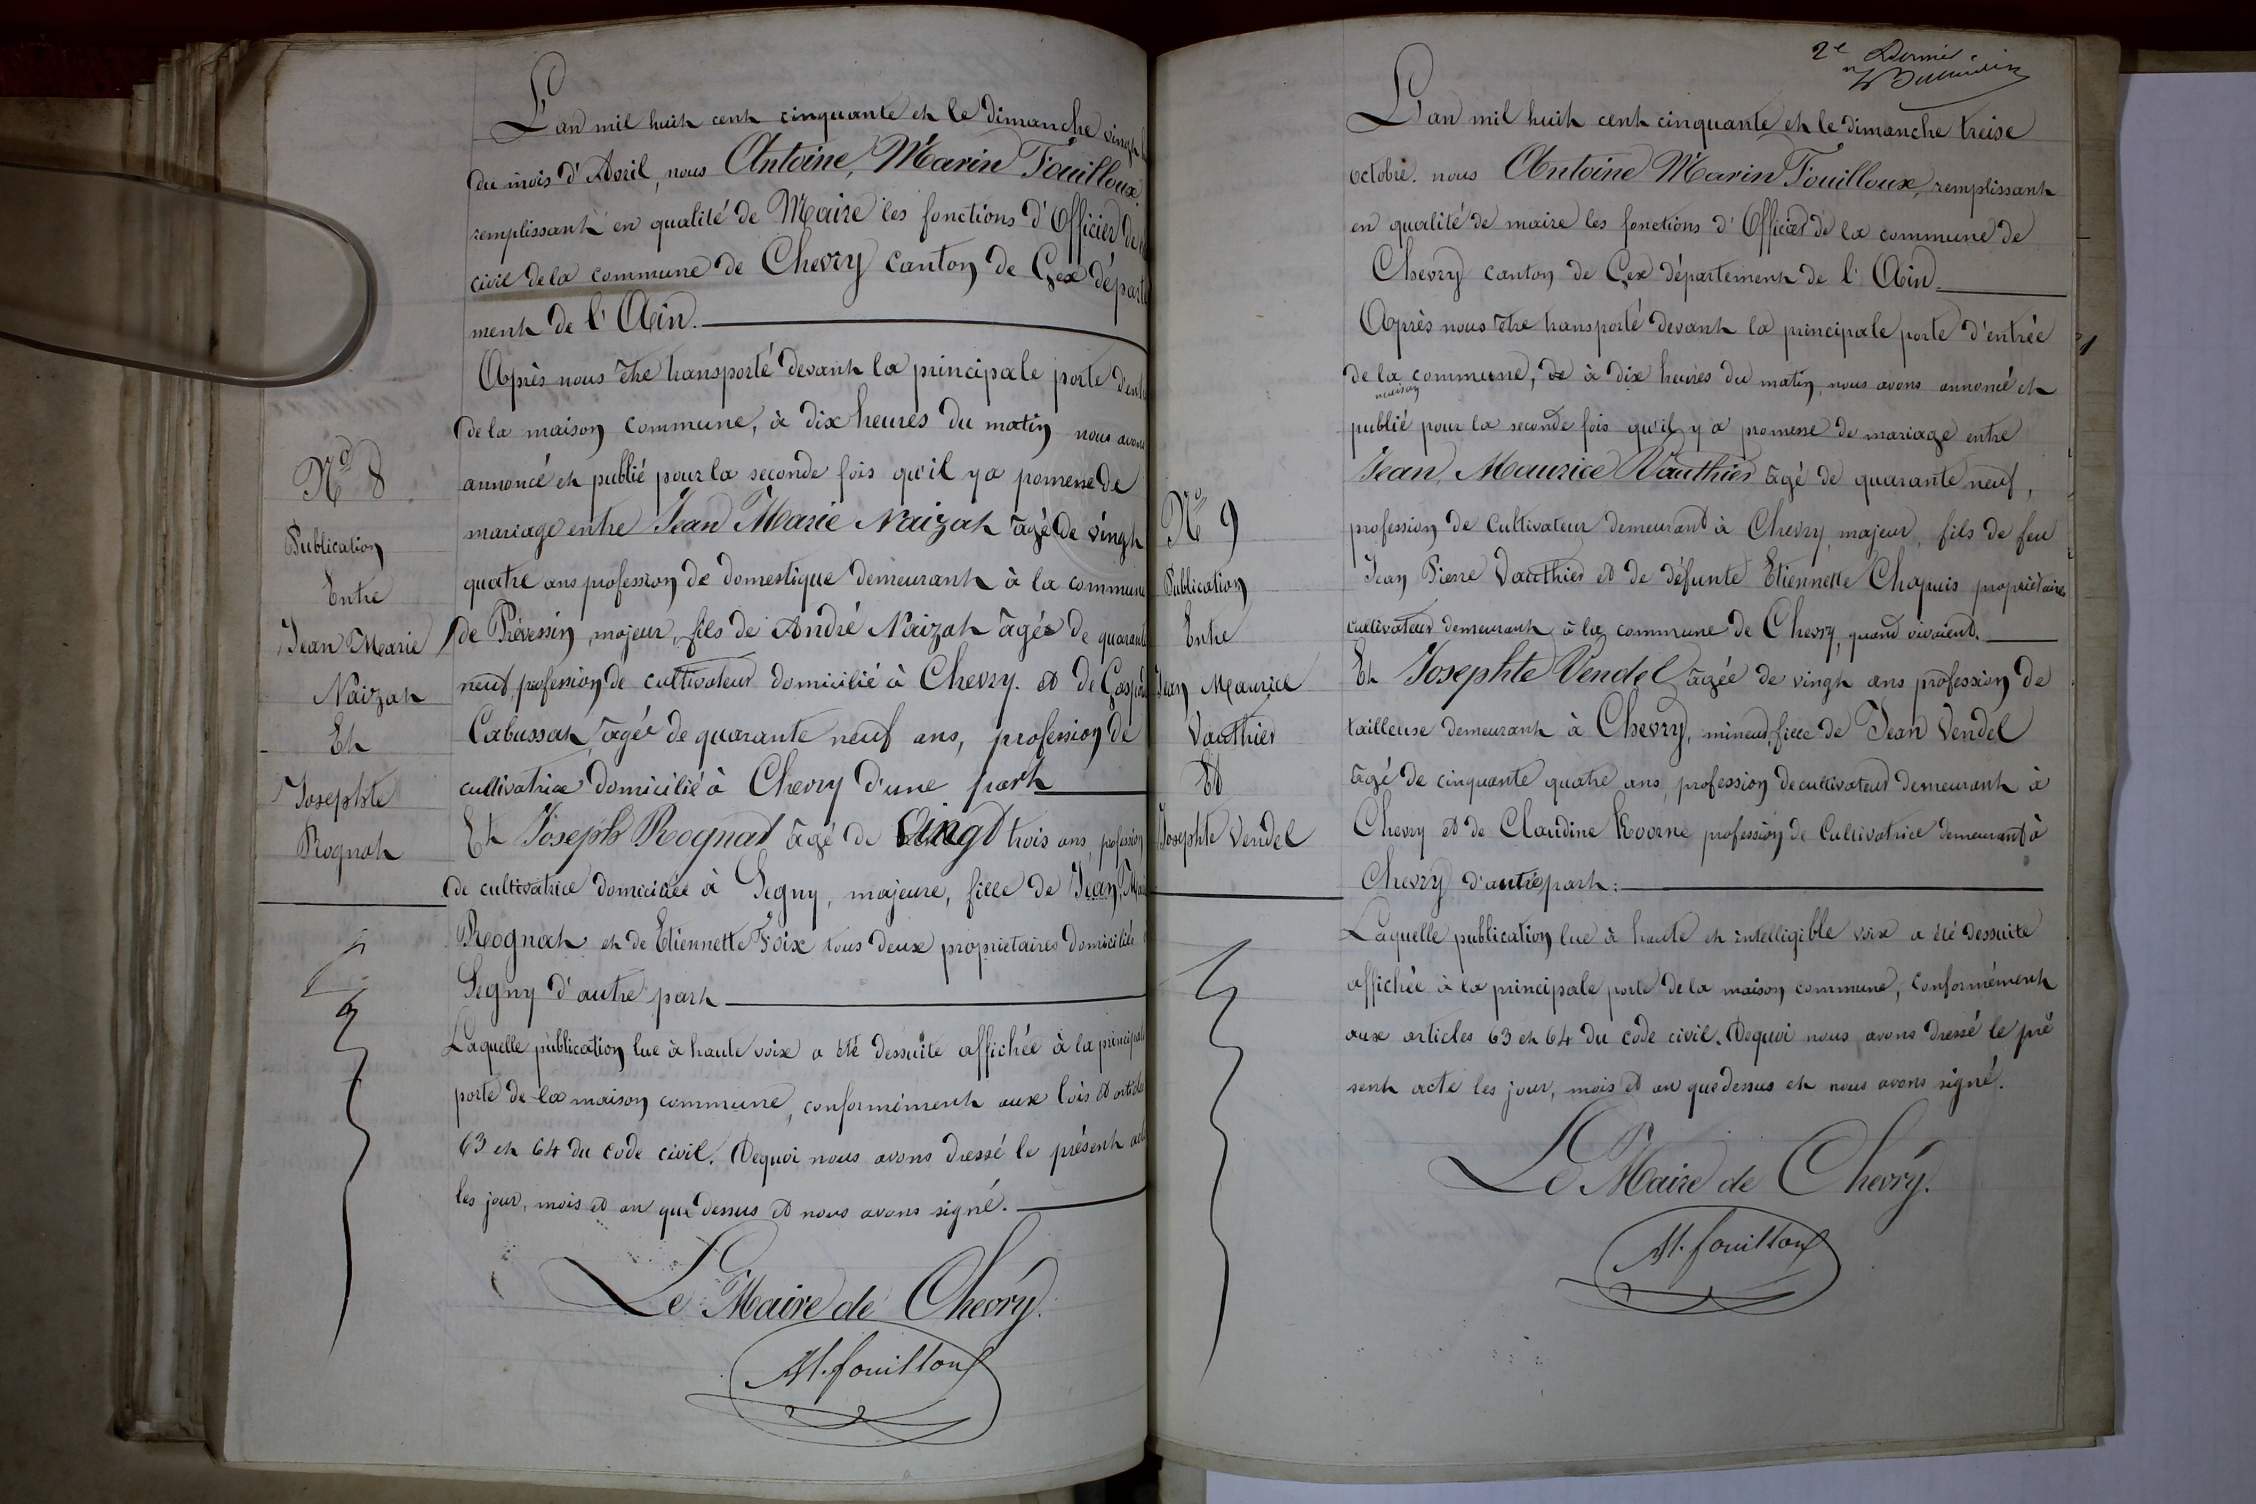 L'an mil huit cent cinquante et le dimanche vingt
du mois d'Avril, nous Antoine, Marin Fouilloux
remplissant en qualité de Maire les fonctions d'Officier de
civil de la commune de Chevry canton de Gex départe
ment de l'Ain.
Après nous être transporté devant la principale porte d'ent
de la maison commune, à dix heures du matin nous avons
annoncé et publié pour la seconde fois qu'il y a pomesse de
mariage entre Jean Marie Naizat âgé de vingt
quatre ans profession de domestique demeurant à la commune
de Prévessin, majeur, fils de André Naizat âgée de quarante
neuf, profession de cultivateur domicilié à Chevry. et de Gaspar
Cabussat, âgée de quarante neuf ans, profession de
cultivatrice domicilié à Chevry d'une part
Et Joseph Rognat âgé de vingt trois ans, profession
de cultivatrice domiciliée à Segny, majeure, fille de Jean, Ma
Rognat et de Etiennette Foix tous deux propriétaires domiciliés
Segny d'autre part
Laquelle publication lue à haute voix a été dessuite affichée à la principale
porte de la maison commune, conformément aux lois et articles
63 et 64 du code civil. Dequoi nous avons dressé le présent acte
les jour, mois et an que dessus et nous avons signé.
Le Maire de Chevry.
M. fouilloux
No 8
Publication
Entre
Jean Marie
Naizat
Et
Josephte
Rognat
2e
L'an mil huit cent cinquante et le dimanche treise
octobre. nous Antoine Marin Fouilloux, remplissant
en qualité de maire les fonctions d'Officier de la commune de
Chevry canton de Gex département de l'Ain
Après nous être transporté devant la principale porte d'entrée
de la commune, de à dix heures du matin, nous avons annoncé et
maison
publié pour la seconde fois qu'il y a promesse de mariage entre
Jean Maurice Vauthier âgé de quarante neuf,
profession de Cultivateur demeurant à Chevry, majeur, fils de feu
Jean Pierre Vauthier et de défunte Etiennette Chapuis propriétaires
cultivateur demeurant à la commune de Chevry, quand vivaient.
Et Josephte Vendel âgée de vingt ans profession de
tailleuse demeurant à Chevry, mineur, fille de Jean Vendel
âgé de cinquante quatre ans, profession de cultivateur demeurant à
Chevry et de Claudine profession de Cultivatrice demeurant à
Chevry d'autre part:
Laquelle publication lue à haute et intelligible voix a été dessuite
affichée à la principale porte de la maison commune, conformément
aux articles 63 et 64 du code civil. Dequoi nous avons dressé le pré
sent acte les jour, mois et an que dessus et nous avons signé.
Le Maire de Chevry.
M. fouilloux
No 9
Publication
Entre
Jean Maurice
Vauthier
Et
Josephte Vendel